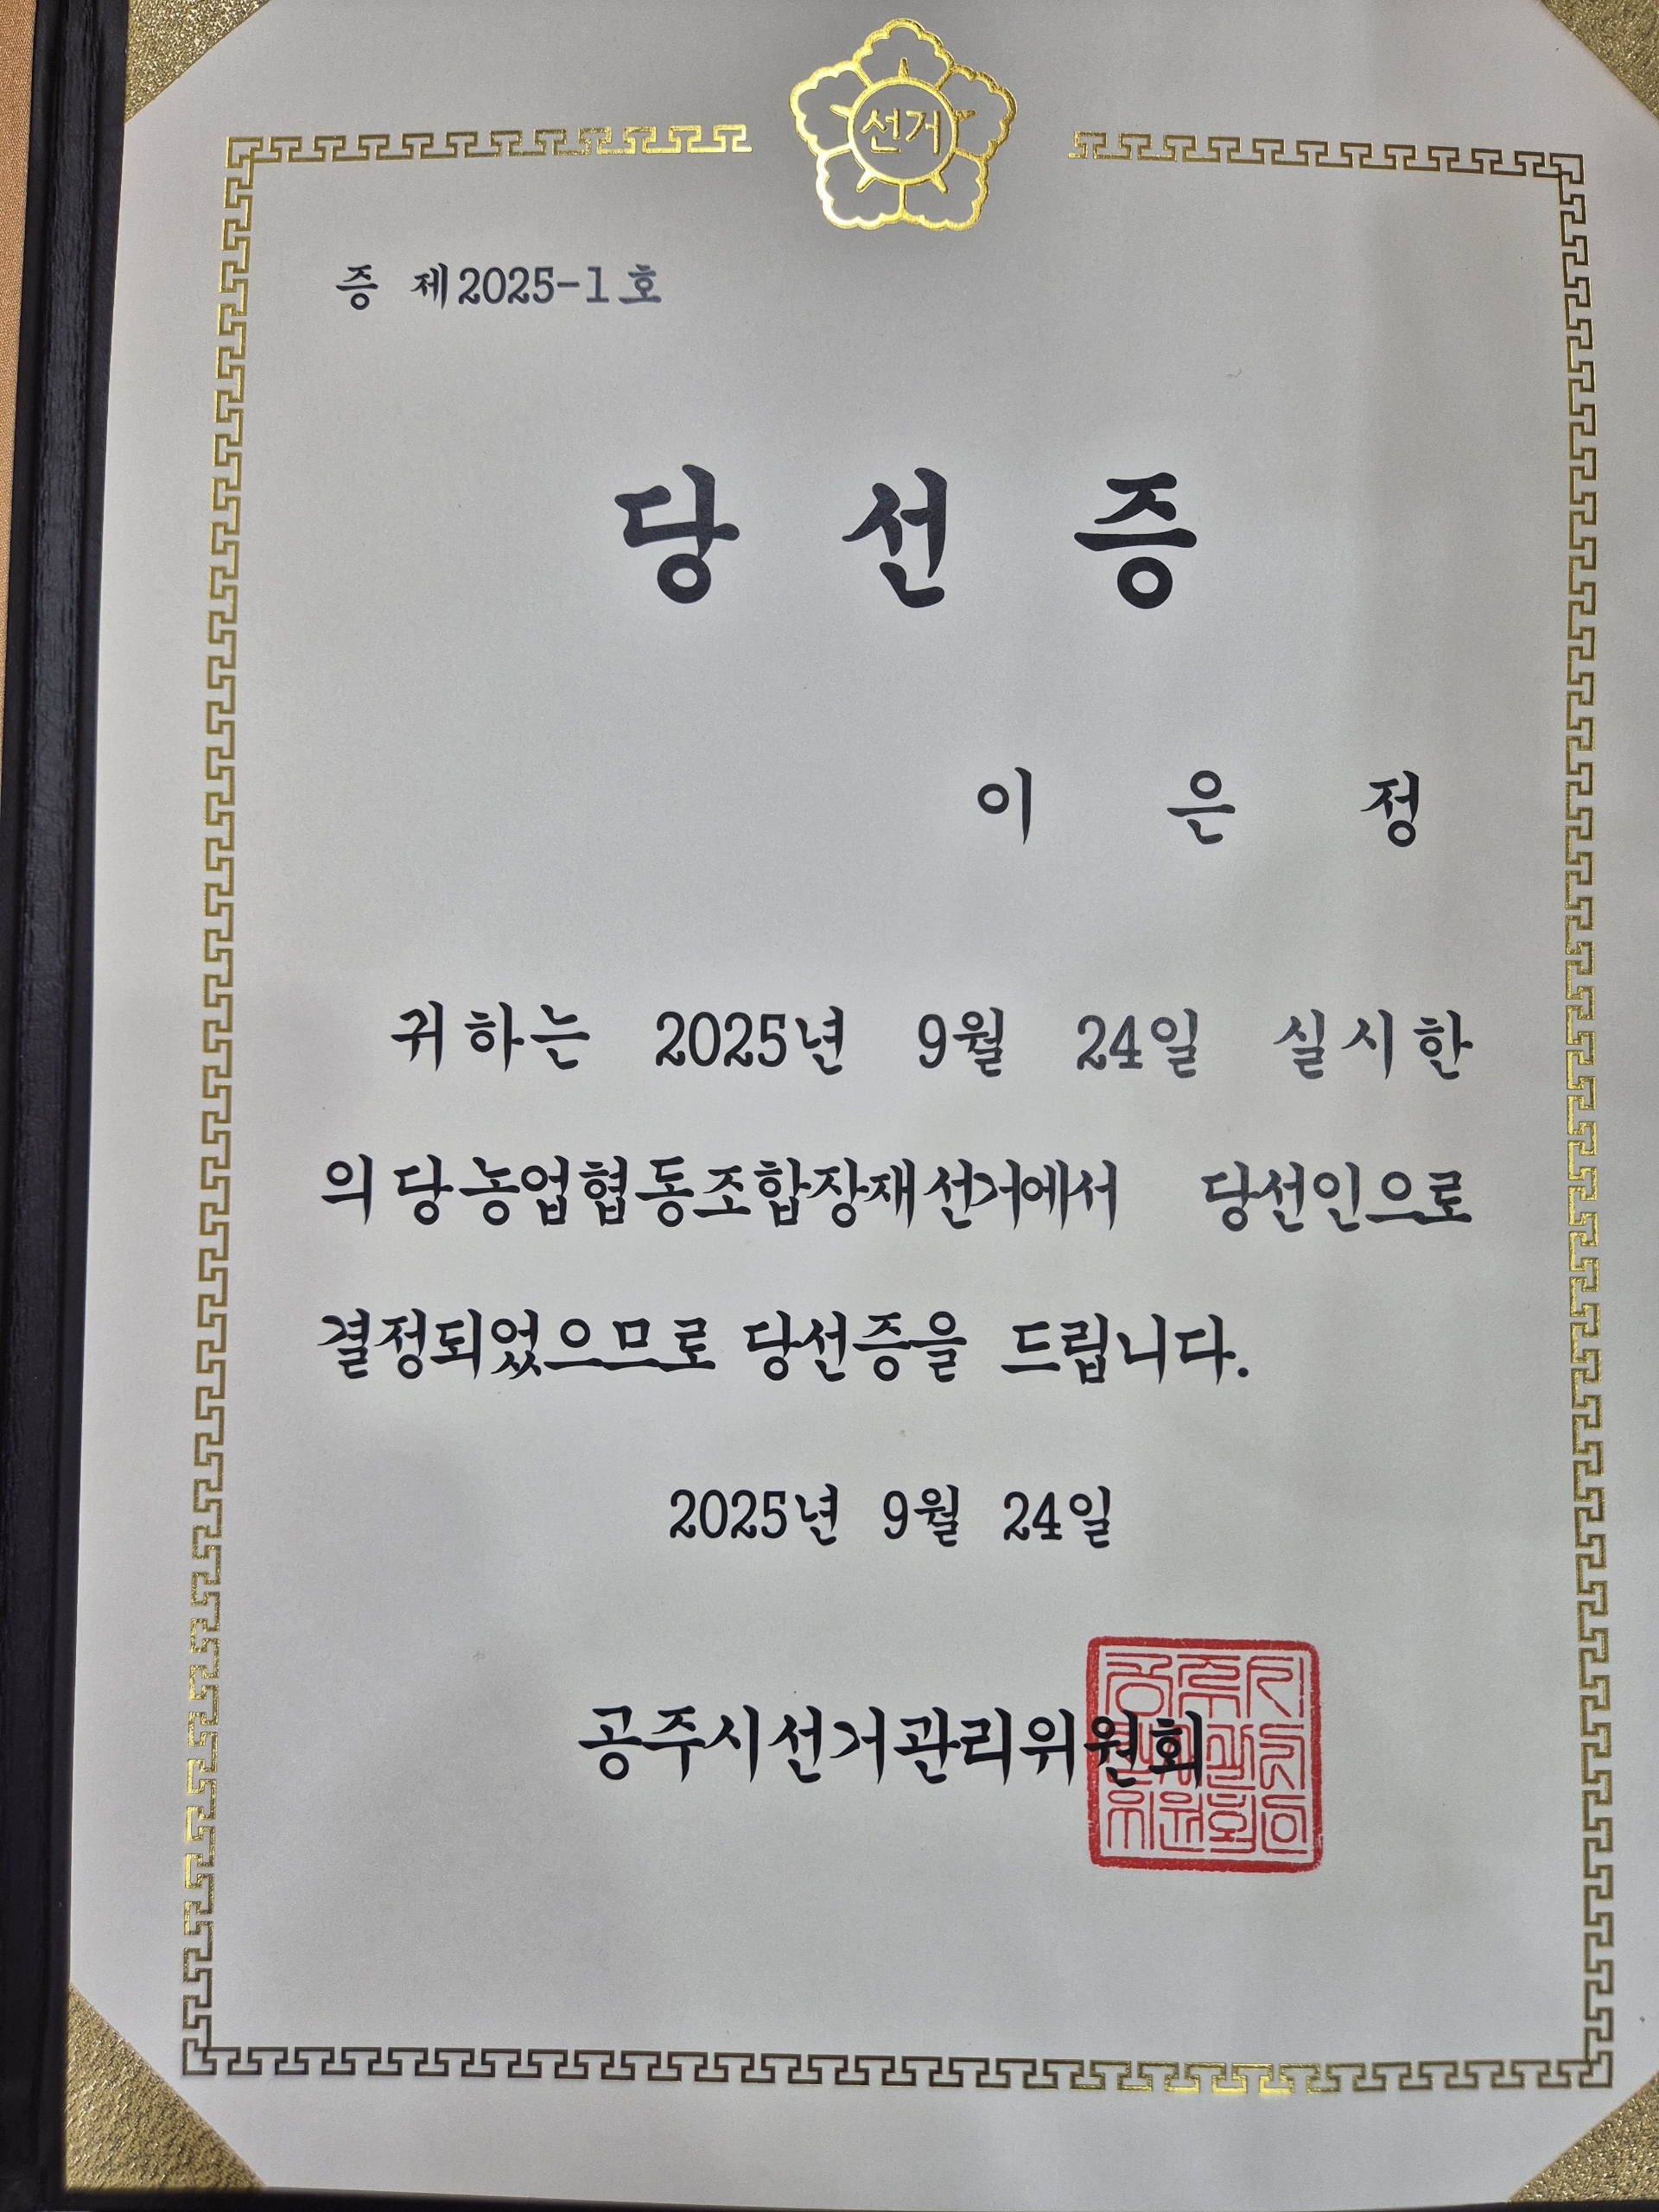 선거
증 제2025-1호
당 선 증
이 은 정
귀하는 2025년 9월 24일 실시한
의당농업협동조합장재선거에서 당선인으로
결정되었으므로 당선증을 드립니다.
2025년 9월 24일
공주시선거관리위원회